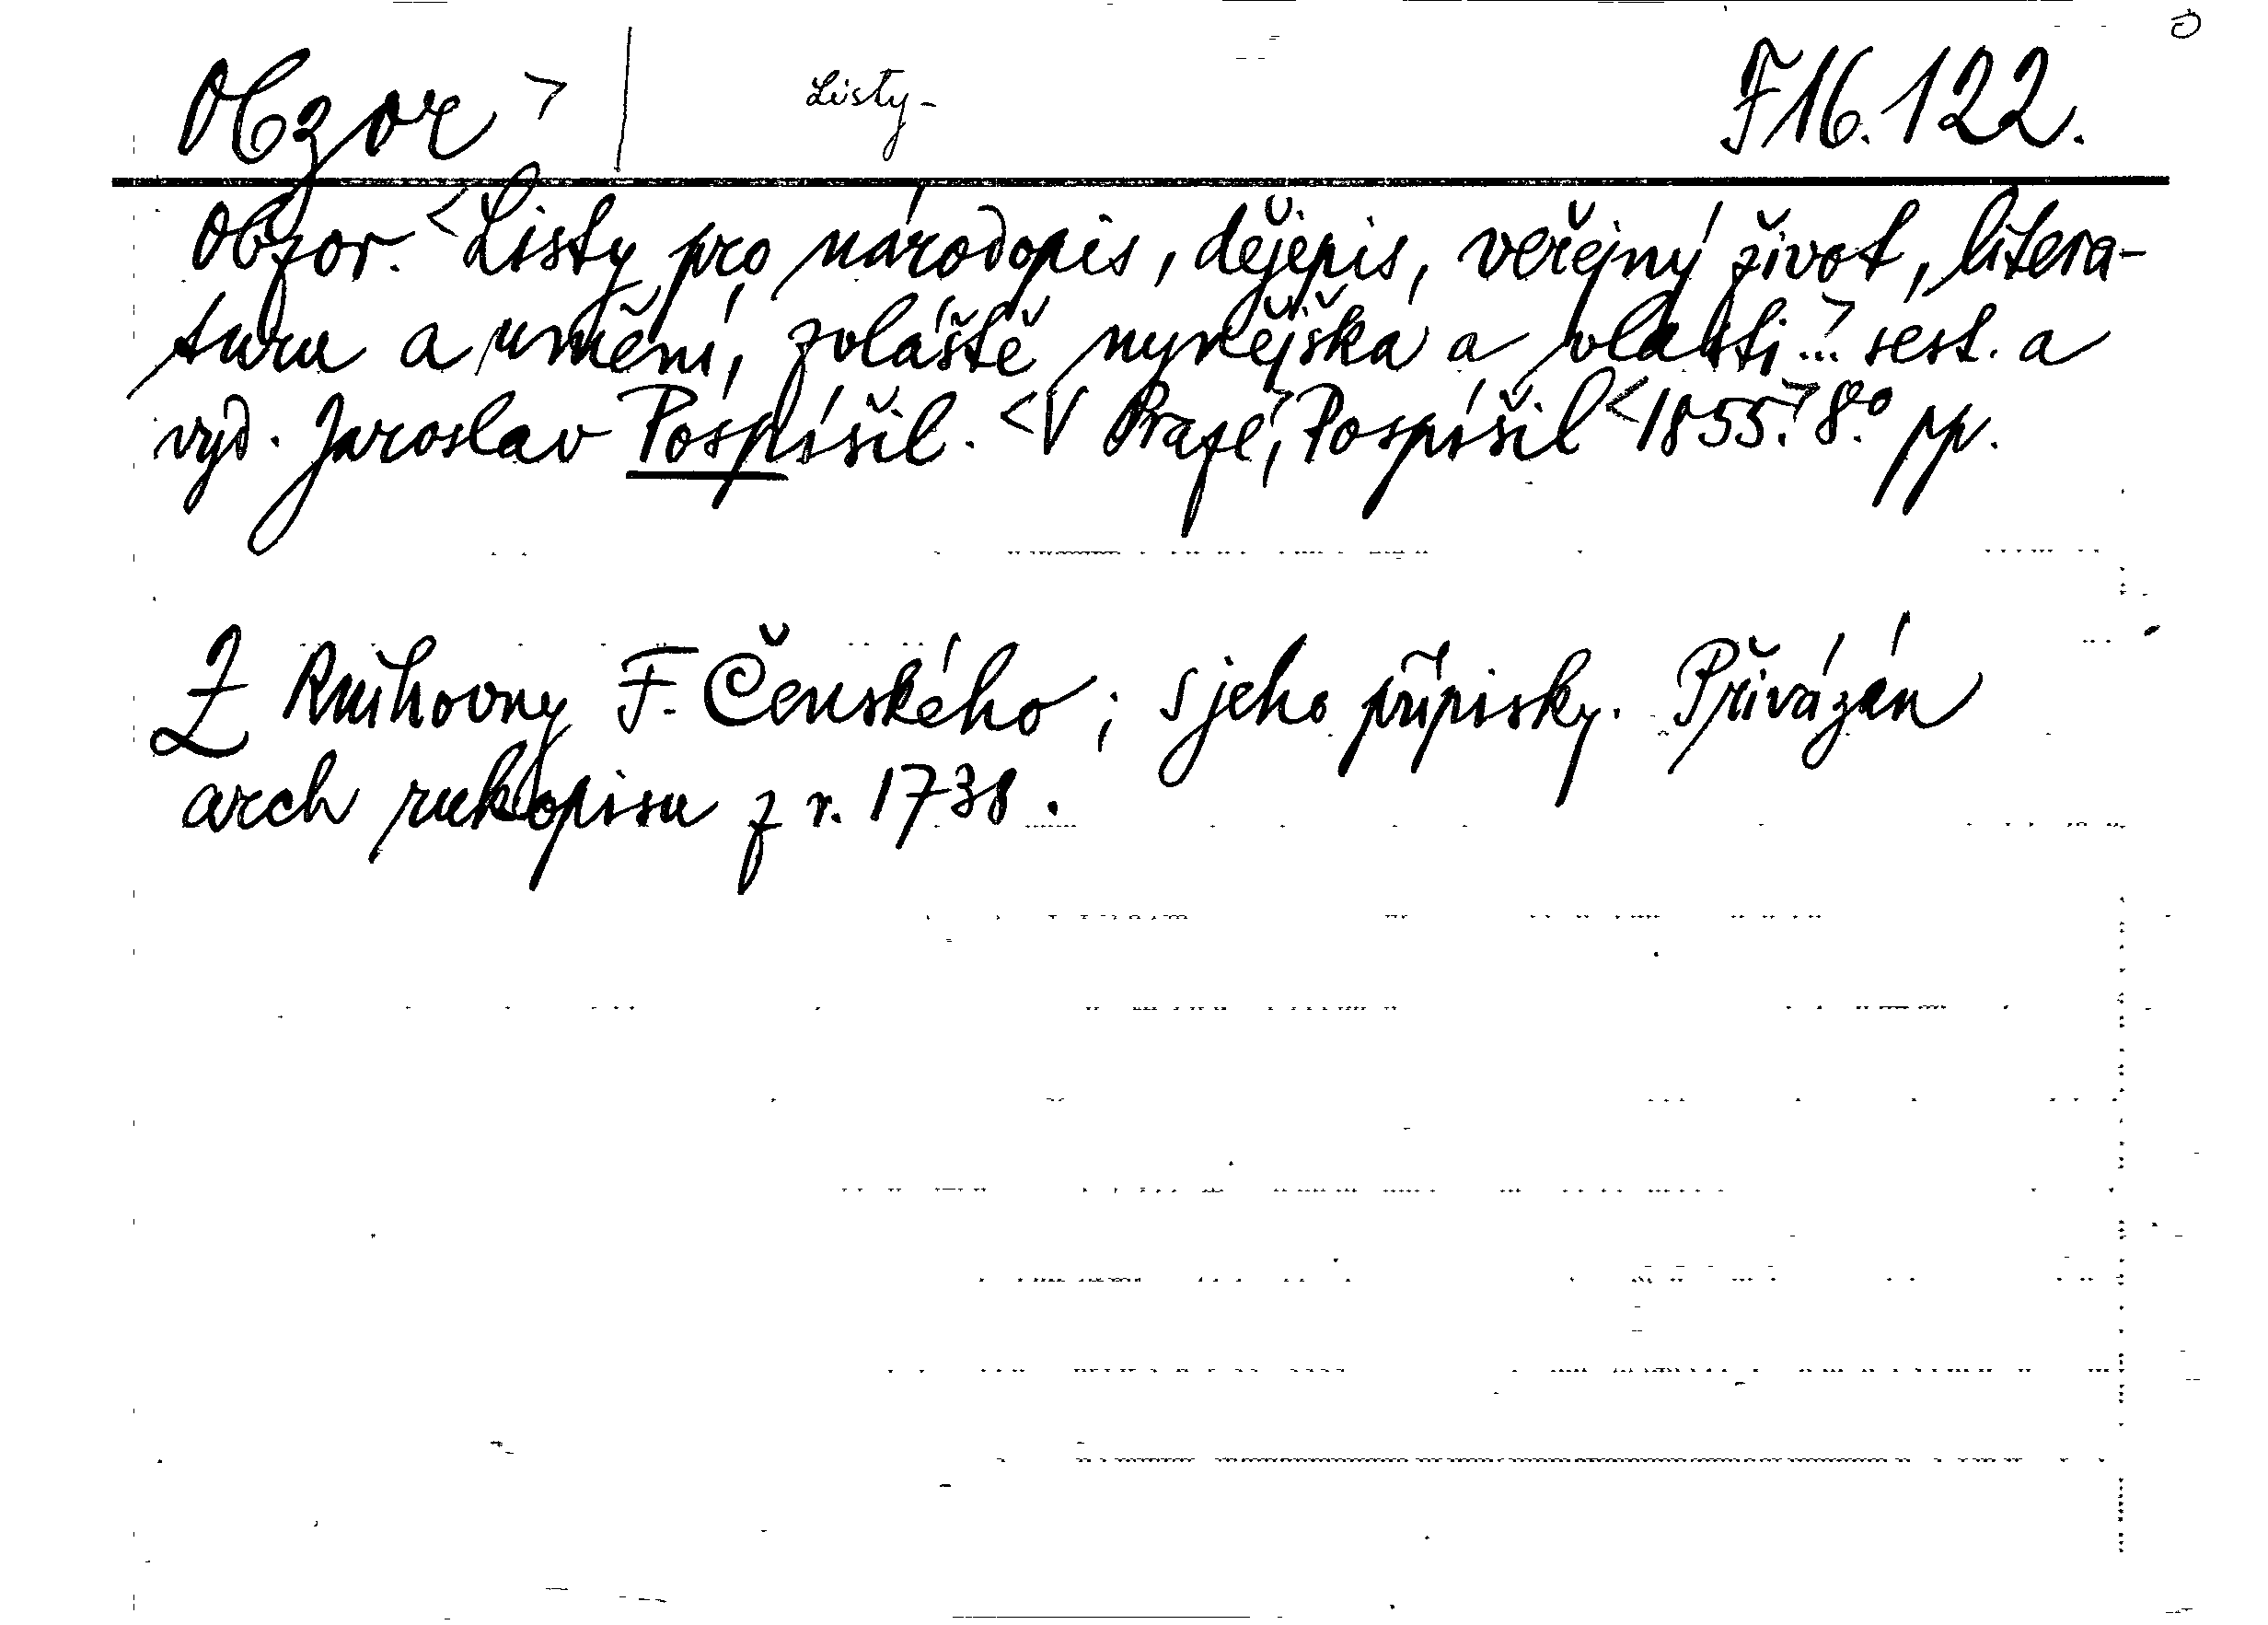 Obzor > | Listy- F16.122.
Obzor. <Listy pro národopis, dějepis, veřejný život, litera-
turu a umění, zvláště nynějška a vlasti...> sest. a
vyd. Jaroslav Pospíšil. <V Praze>, Pospíšil <1855.> 8.º pp.
Z knihovny F. Čenského; s jeho přípisky. Přivázán
arch rukopisu z r. 1738.